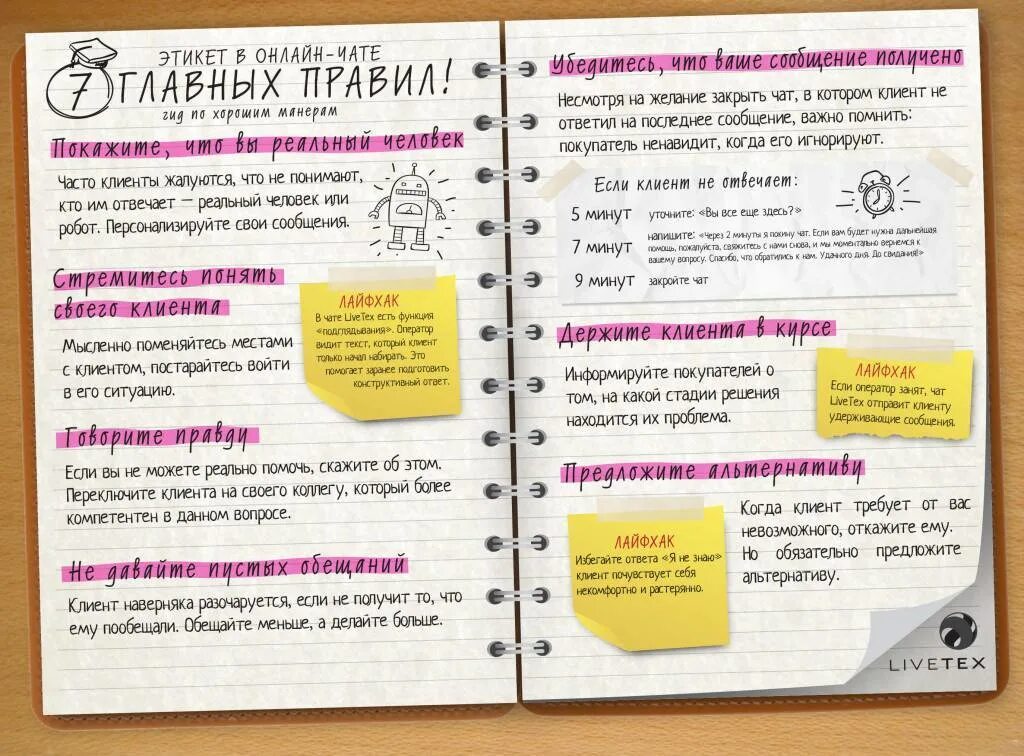 ЭТИКЕТ В ОНЛАЙН-ЧАТЕ
7 ГЛАВНЫХ ПРАВИЛ!
гид по хорошим манерам
Покажите, что вы реальный человек
Часто клиенты жалуются, что не понимают,
кто им отвечает – реальный человек или
робот. Персонализируйте свои сообщения.
Стремитесь понять
своего клиента
Мысленно поменяйтесь местами
с клиентом, постарайтесь войти
в его ситуацию.
ЛАЙФХАК
В чате LiveTex есть функция
«подглядывания». Оператор
видит текст, который клиент
только начал набирать. Это
помогает заранее подготовить
конструктивный ответ.
Говорите правду
Если вы не можете реально помочь, скажите об этом.
Переключите клиента на своего коллегу, который более
компетентен в данном вопросе.
Не давайте пустых обещаний
Клиент наверняка разочаруется, если не получит то, что
ему пообещали. Обещайте меньше, а делайте больше.
Убедитесь, что ваше сообщение получено
Несмотря на желание закрыть чат, в котором клиент не
ответил на последнее сообщение, важно помнить:
покупатель ненавидит, когда его игнорируют.
Если клиент не отвечает:
5 минут уточните: «Вы все еще здесь?»
7 минут напишите: «Через 2 минуты я покину чат. Если вам будет нужна дальнейшая
помощь, пожалуйста, свяжитесь с нами снова, и мы моментально вернемся к
вашему вопросу. Спасибо, что обратились к нам. Удачного дня. До свидания!»
9 минут закройте чат
Держите клиента в курсе
Информируйте покупателей о
том, на какой стадии решения
находится их проблема.
ЛАЙФХАК
Если оператор занят, чат
LiveTex отправит клиенту
удерживающие сообщения.
Предложите альтернативу
ЛАЙФХАК
Избегайте ответа «Я не знаю»
клиент почувствует себя
некомфортно и растерянно.
Когда клиент требует от вас
невозможного, откажите ему.
Но обязательно предложите
альтернативу.
LIVETEX